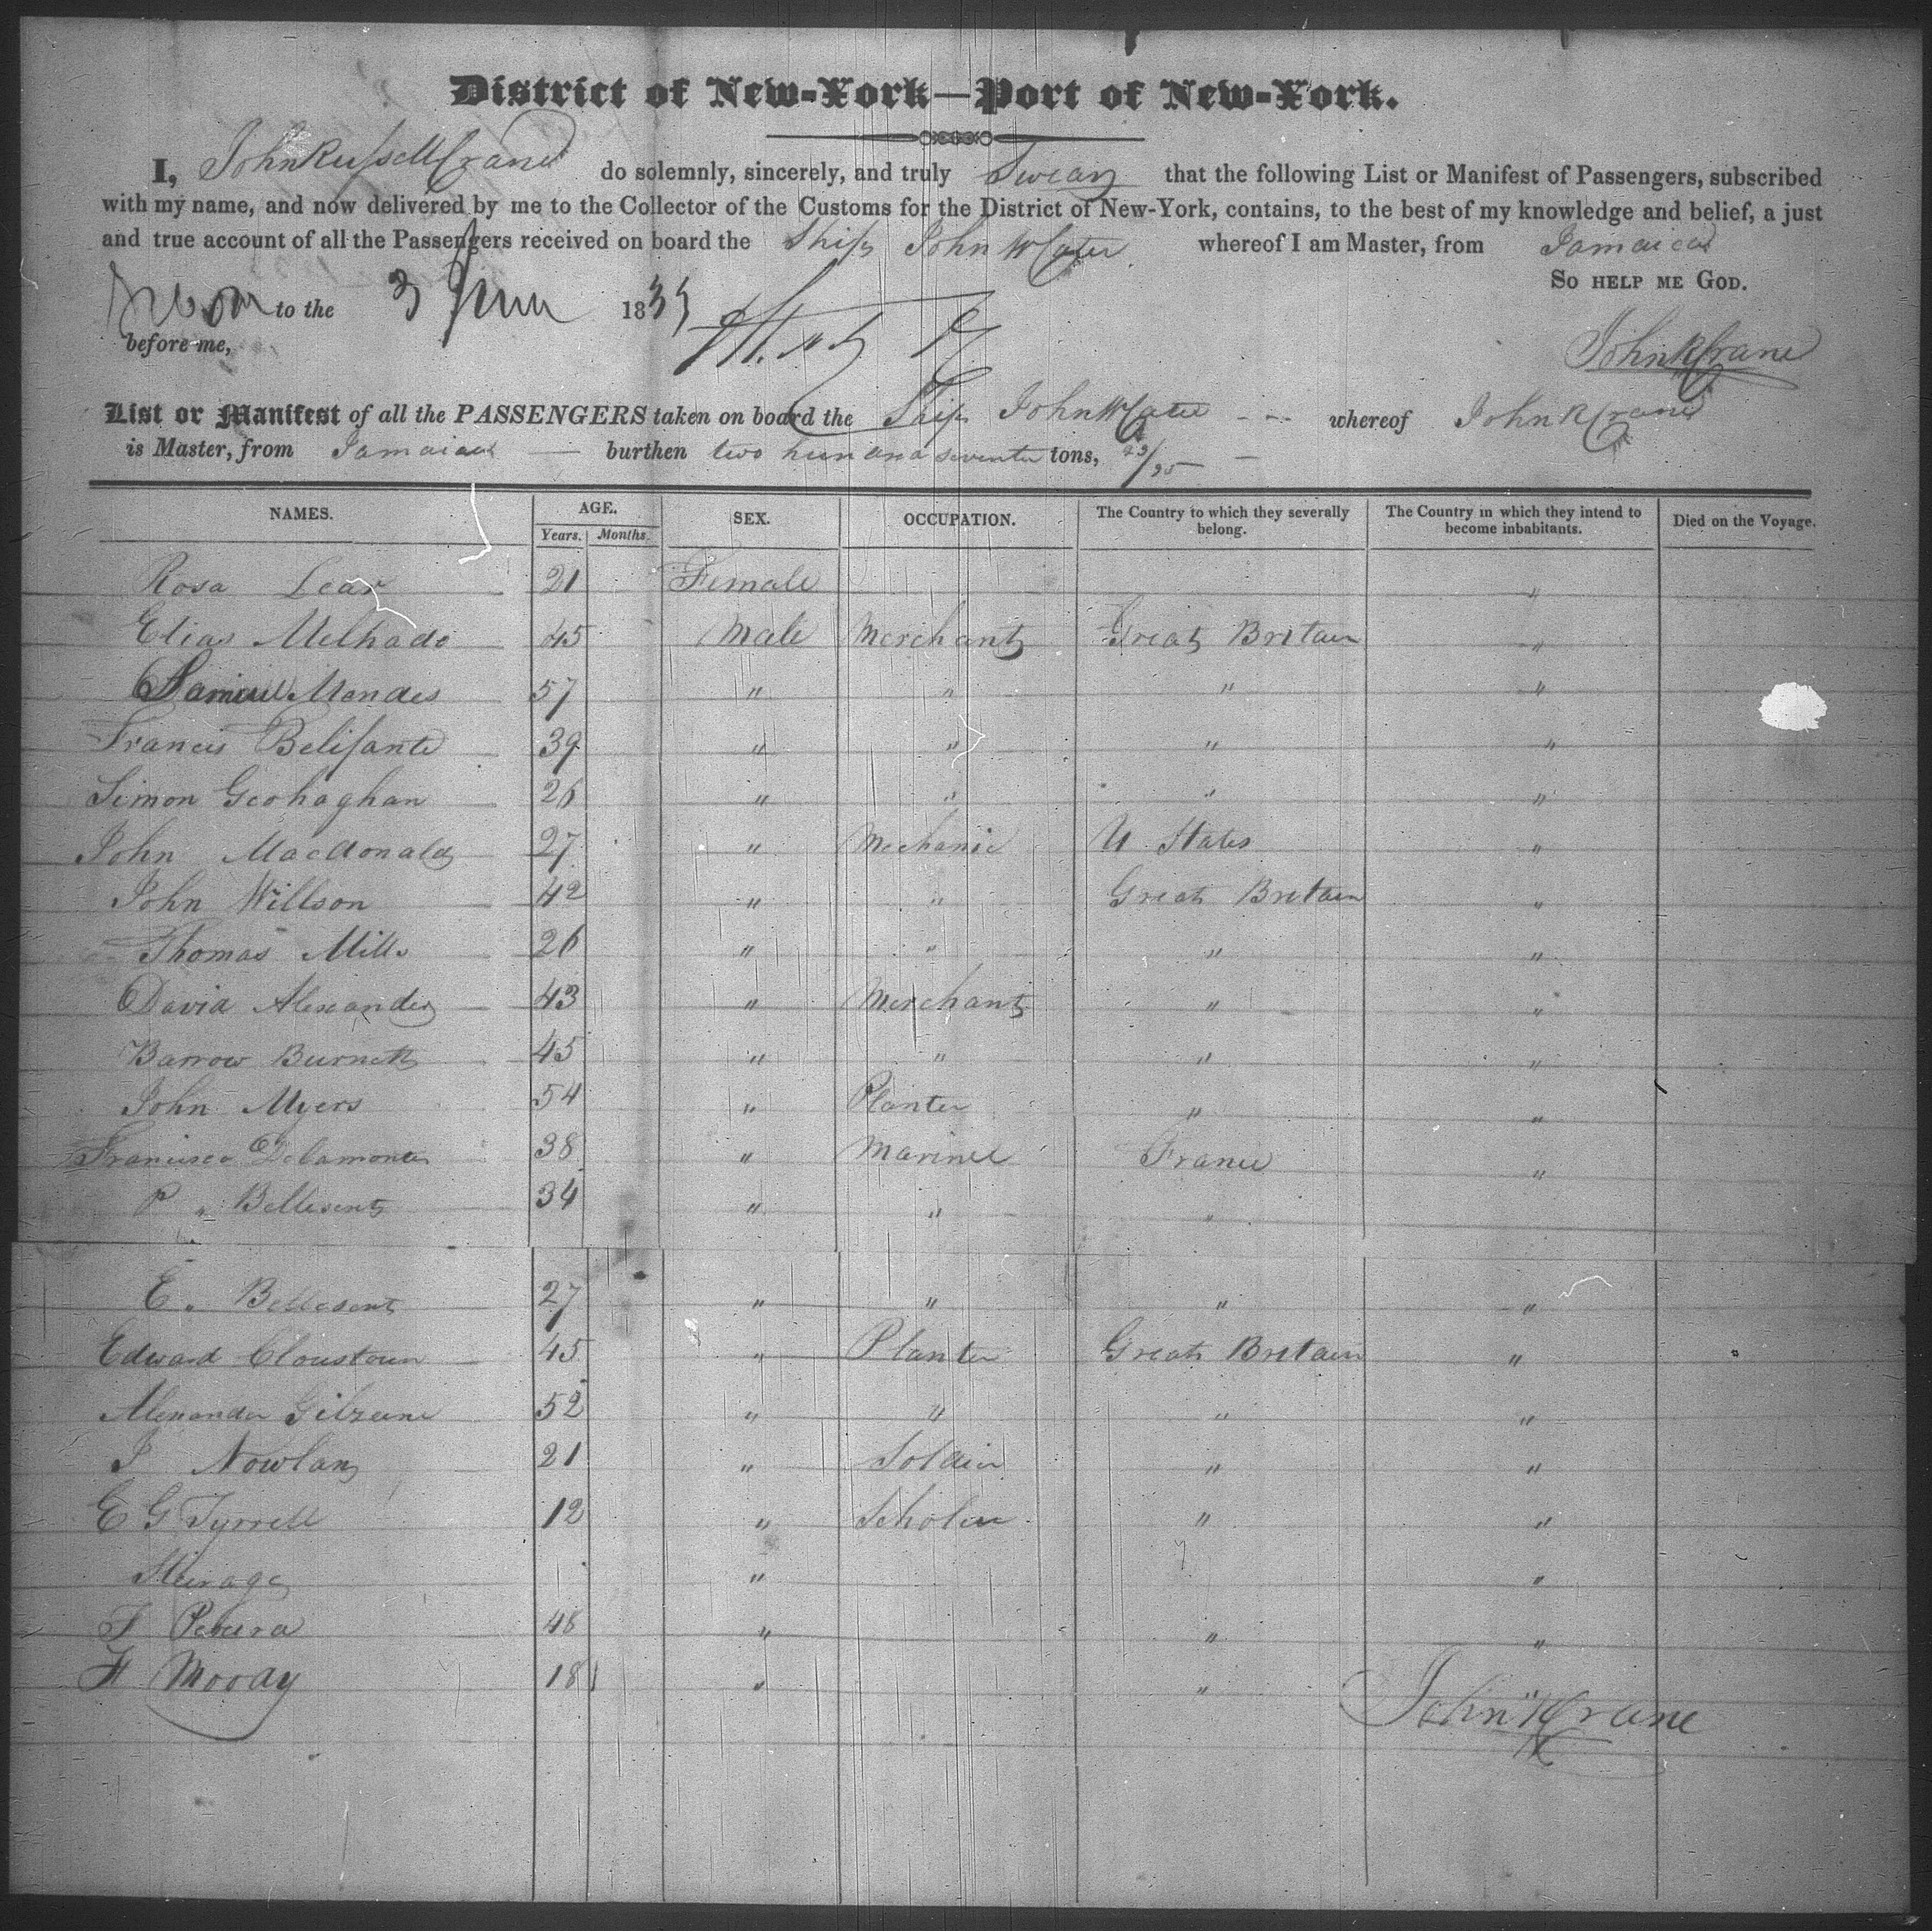 District of New-York—Port of New-York.
I, John Russell Crane do solemnly, sincerely, and truly Swear that the following List or Manifest of Passengers, subscribed
with my name, and now delivered by me to the Collector of the Customs for the District of New-York, contains, to the best of my knowledge and belief, a just
and true account of all the Passengers received on board the Ship John W Cater whereof I am Master, from Jamaica
So help me God.
to the 3 June 1835
before me,
John R Crane
List or Manifest of all the PASSENGERS taken on board the Ship John W Cater whereof John R Crane
is Master, from Jamaica burthen two hun and seventy tons, /95
NAMES. AGE. Years. Months. SEX. OCCUPATION. The Country to which they severally belong. The Country in which they intend to become inhabitants. Died on the Voyage.
Rosa Lear 21 Female "
Elias Melhado 45 Male Merchant Great Britain "
Samuel Mendes 57 " " " "
Francis Belisante 39 " " " "
Simon Geohaghan 26 " " " "
John Macdonald 27 " Mechanic U States "
John Willson 42 " " Great Britain "
Thomas Mills 26 " " " "
David Alexander 43 " Merchant " "
Barrow Burnett 45 " " " "
John Myers 54 " Planter " "
Francisco Delamonte 38 " Marine France "
P " Bellesent 34 " " "
E. Bellesent 27 " " " "
Edward Cloustoun 45 " Planter Great Britain "
Alexander Gilzeane 52 " " " "
J Nowlan 21 " Soldier " "
E G Tyrrell 12 " Scholar " "
Steirage " "
J Pereira 48 " " "
H Moody 18 " " "
John R Crane